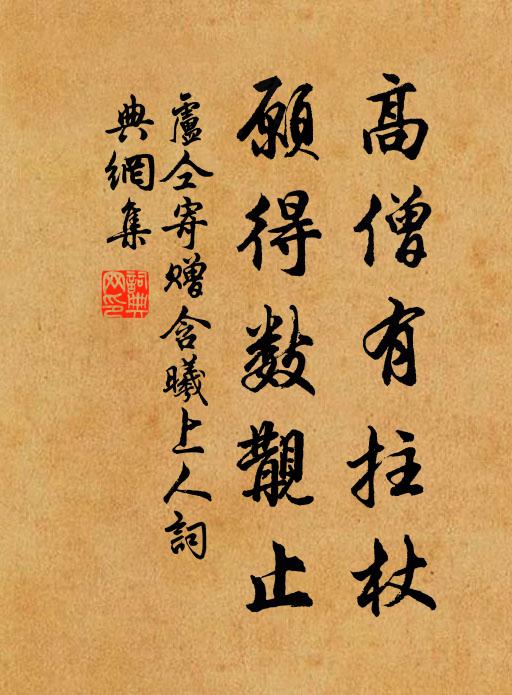 高僧有拄杖
願得數覯止
盧仝寄贈含曦上人詞
典網集
詞典網印